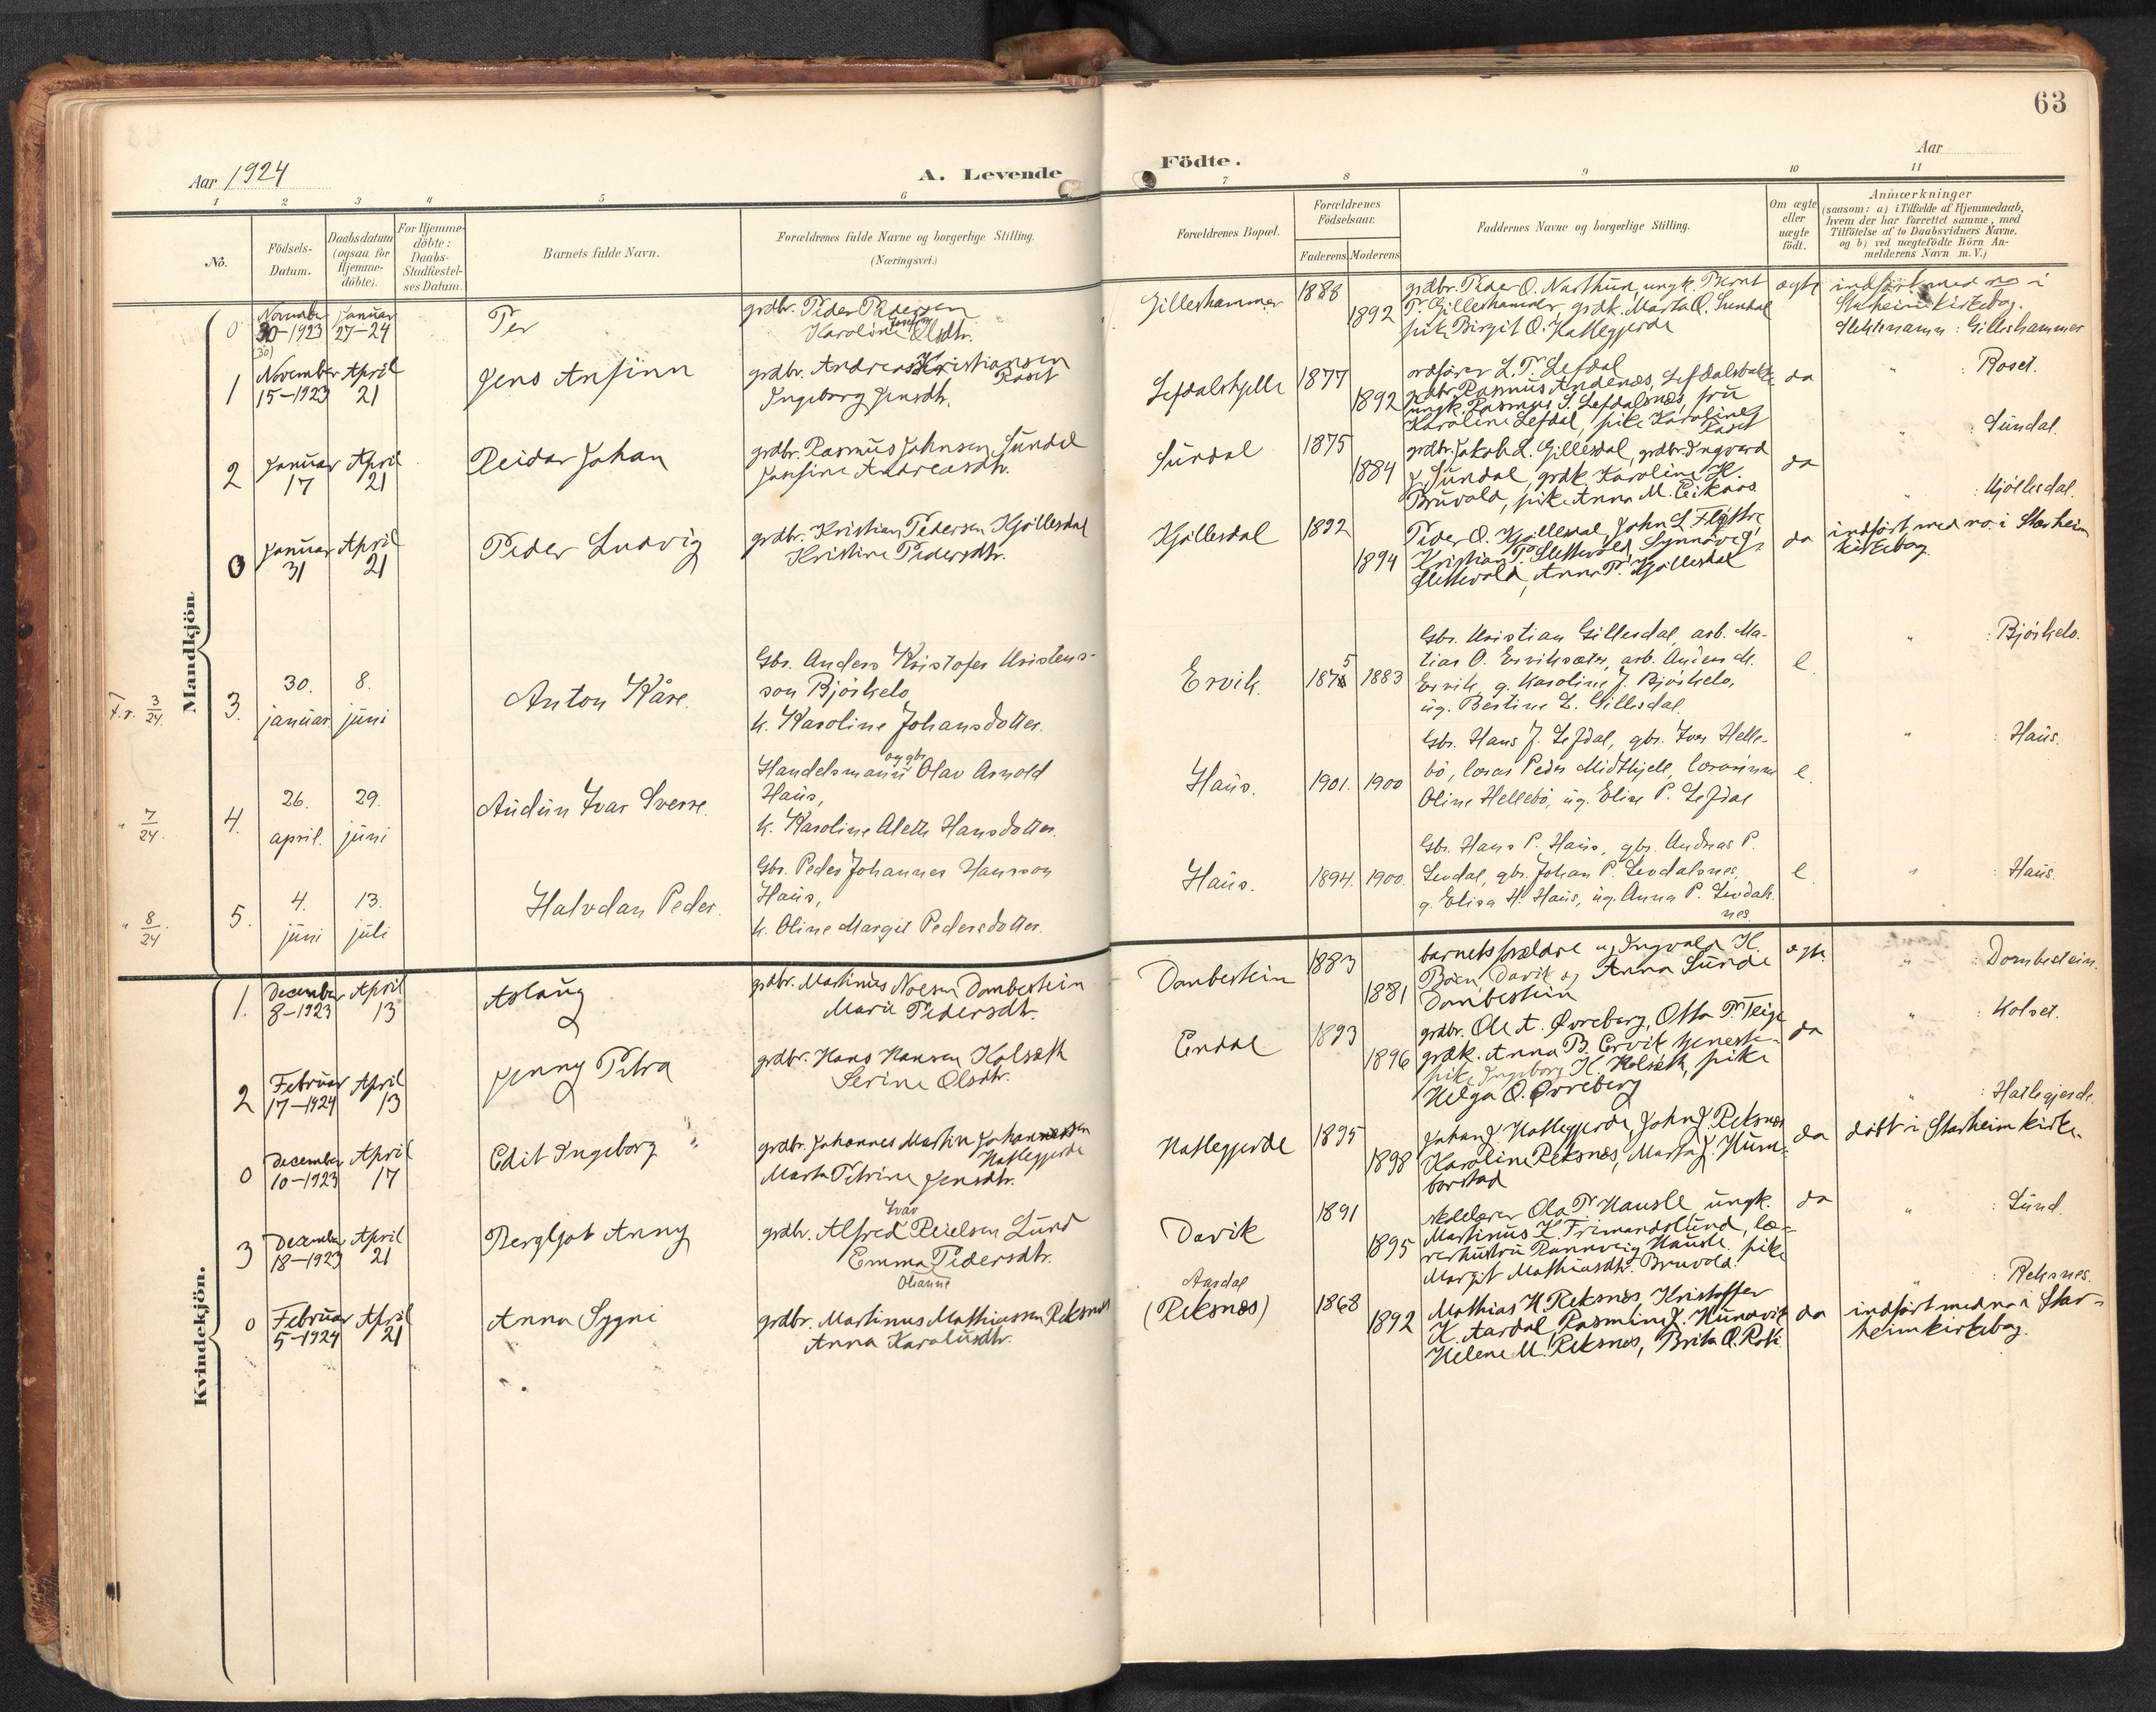 63
Aar 1924
A. Levende
Födte.
Aar
1 2 3 4 5 6 7 8 9 10 11
No.
Födsels-
Datum.
Daabsdatum
(ogsaa for
Hjemme-
döbte).
For Hjemme-
döbte:
Daabs-
Stadfæstel-
ses Datum.
Barnets fulde Navn.
Forældrenes fulde Navne og borgerlige Stilling.
(Næringsvei.)
Forældrenes Bopæl.
Forældrenes
Födselsaar.
Faderens. Moderens
Faddernes Navne og borgerlige Stilling.
Om ægte
eller
uægte
födt.
Anmærkninger
(saasom: a) i Tilfælde af Hjemmedaab,
hvem der har forrettet samme, med
Tilföielse af to Daabsvidners Navne.
og b) ved uægtefödte Börn An-
melderens Navn m. V.)
Mandkjön.
0
November
30-1923
(30)
Januar
27-24
Per
grdbr. Peder Pedersen
Karoline Olsdtr.
Gilleshammer
1888
1892
grdbr. Peder O. Narthun, ungk. Bernt
P. Gilleshamder, grdk. Marta O. Sundal
pike Birgit O. Hatlegjerde
ægte
indført med no i
Starheim kirkebog.
Slektsnamn: Gilleshammer
1
November
15-1923
April
21
Jens Anfinn
grdbr. Andreas Kristiansen
Raset
Ingeborg Jensdtr.
Lefdalskjelle
1877
1892
ordfører L. P. Lefdal
grdbr. Rasmus Andenæs, Lefdalsbakke
ungk. Rasmus S. Lefdalsnæs, fru
Karoline Lefdal, pike Karoline J
Raset
da
" : Roset.
2
Januar
17
April
21
Reidar Johan
grdbr. Rasmus Johnsen Sundal
Josefine Andreasdtr.
Sundal
1875
1884
grdbr. Jakob L. Gillesdal, grdbr. Ingvard
J. Sundal, grdk. Karoline H.
Bruvold, pike Anna M. Eikaas
da
" : Sundal.
0
Januar
31
April
21
Peder Ludvig
grdbr. Kristian Pedersen Kjøllesdal
Kristine Pedersdtr.
Kjøllesdal
1892
1894
Peder O. Kjøllesdal, John L Fløtre
Kristian P. Slettevold, Synnöveg
Slettevold, Anna P. Kjøllesdal
da
" : Kjöllesdal.
indført med no. i Starheim
kirkebog.
f. r. 3/24.
3.
30.
januar
8.
juni
Anton Kåre.
Gbr. Anders Kristofer Kristens-
son Bjöskelo
k. Karoline Johansdotter.
Ervik.
1875
1883
Gbr. Kristian Gillesdal, arb. Ma-
tias O. Erviksæter, arb. Anders M.
Ervik, g. Karoline J. Bjöskelo,
ug. Bertine L. Gillesdal.
e.
" : Björkelo.
" 7/24.
4.
26.
april.
29.
juni
Audun Ivar Sverre.
og gbr.
Handelsmann Olav Arnold
Haus,
k. Karoline Aleth Hansdotter.
Haus.
1901.
1900
Gbr. Hans J. Lefdal, gbr. Iver Helle-
bö, lærar Peder Midthjell, lærarinne
Oline Hellebö, ug. Elise P. Lefdal
e.
" : Haus.
" 8/24.
5.
4.
juni
13.
juli
Halvdan Peder.
Gbr. Peder Johannes Hansson
Haus,
k. Oline Margit Pedersdotter.
Haus.
1894.
1900.
Gbr. Hans P. Haus, gbr. Andreas P.
Levdal, gbr. Johan P. Levdalsnes,
g. Elisa H. Haus, ug. Anna P. Levdals-
nes.
e.
" : Haus.
Kvindekjön.
1.
December
8-1923
April
13
Aslaug
grdbr. Martinus Noesen Dombestein
Marie Pedersdtr.
Dombestein
1883
1881
barnets forældre u. Ingvald H.
Böen, Davik og Anna Sunde
Dombestein
ægte.
" : Dombestein.
2
Februar
17-1924
April
13
Jenny Petra
grdbr. Hans Hansen Kolseth
Serine Olsdtr.
Endal
1893
1896
grdbr. Ole A. Øvreberg, Otto P. Teige
grdk. Anna B. Ervik tjeneste-
pike Ingeborg H. Kolseth, pike
Helga O. Øvreberg
da
" : Kolset.
0
December
10-1923
April
17
Edit Ingeborg
grdbr. Johannes Martin Johannessen
Hatlegjerde
Marta Petrine Jensdtr.
Hatlegjerde
1895
1898
Johan J. Hatlegjerde, John J. Reksnæs
Karoline Reksnæs, Marta J. Hum-
borstad
da
" : Hatlegjerde.
döbt i Starheim kirke.
3
December
18-1923
April
21
Bergljot Anny
Ivar
grdbr. Alfred Reielsen Lund
Emma Pedersdtr.
Olianne
Davik
1891
1895
skolelærer Ola P. Hausle, ungk.
Martinus K. Frimandslund, læ-
rerhustru Rannveig Hausle, pike
Margit Mathiasdtr. Bruvold.
da
" : Lund.
0
Februar
5-1924
April
21
Anna Sygni
grdbr. Martinus Mathiassen Reksnæs
Anna Karalusdtr.
Aardal
(Reksnæs)
1868
1892
Mathias H. Reksnæs, Kristoffer
K. Aardal, Rasmine J. Hundvik
Helene M. Reksnæs, Brita O. Roti
da
" : Reksnes.
indført med no i Star-
heim kirkebog.